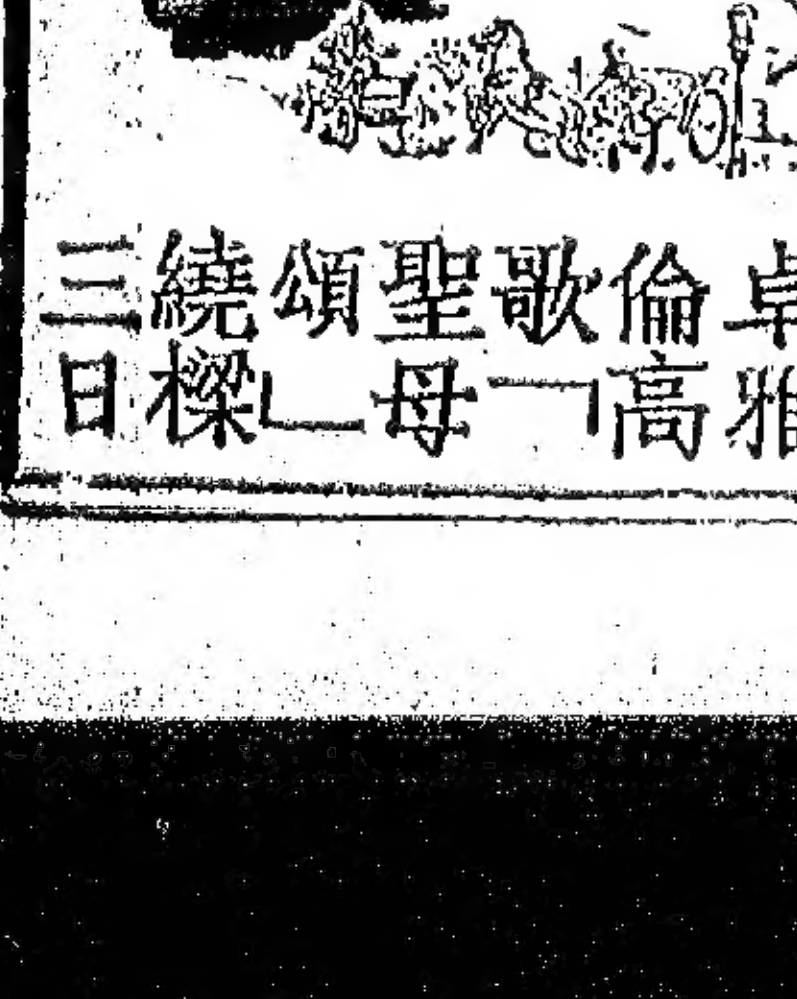 卓雅
倫高
歌﹁
聖母
頌﹂
繞樑
三日